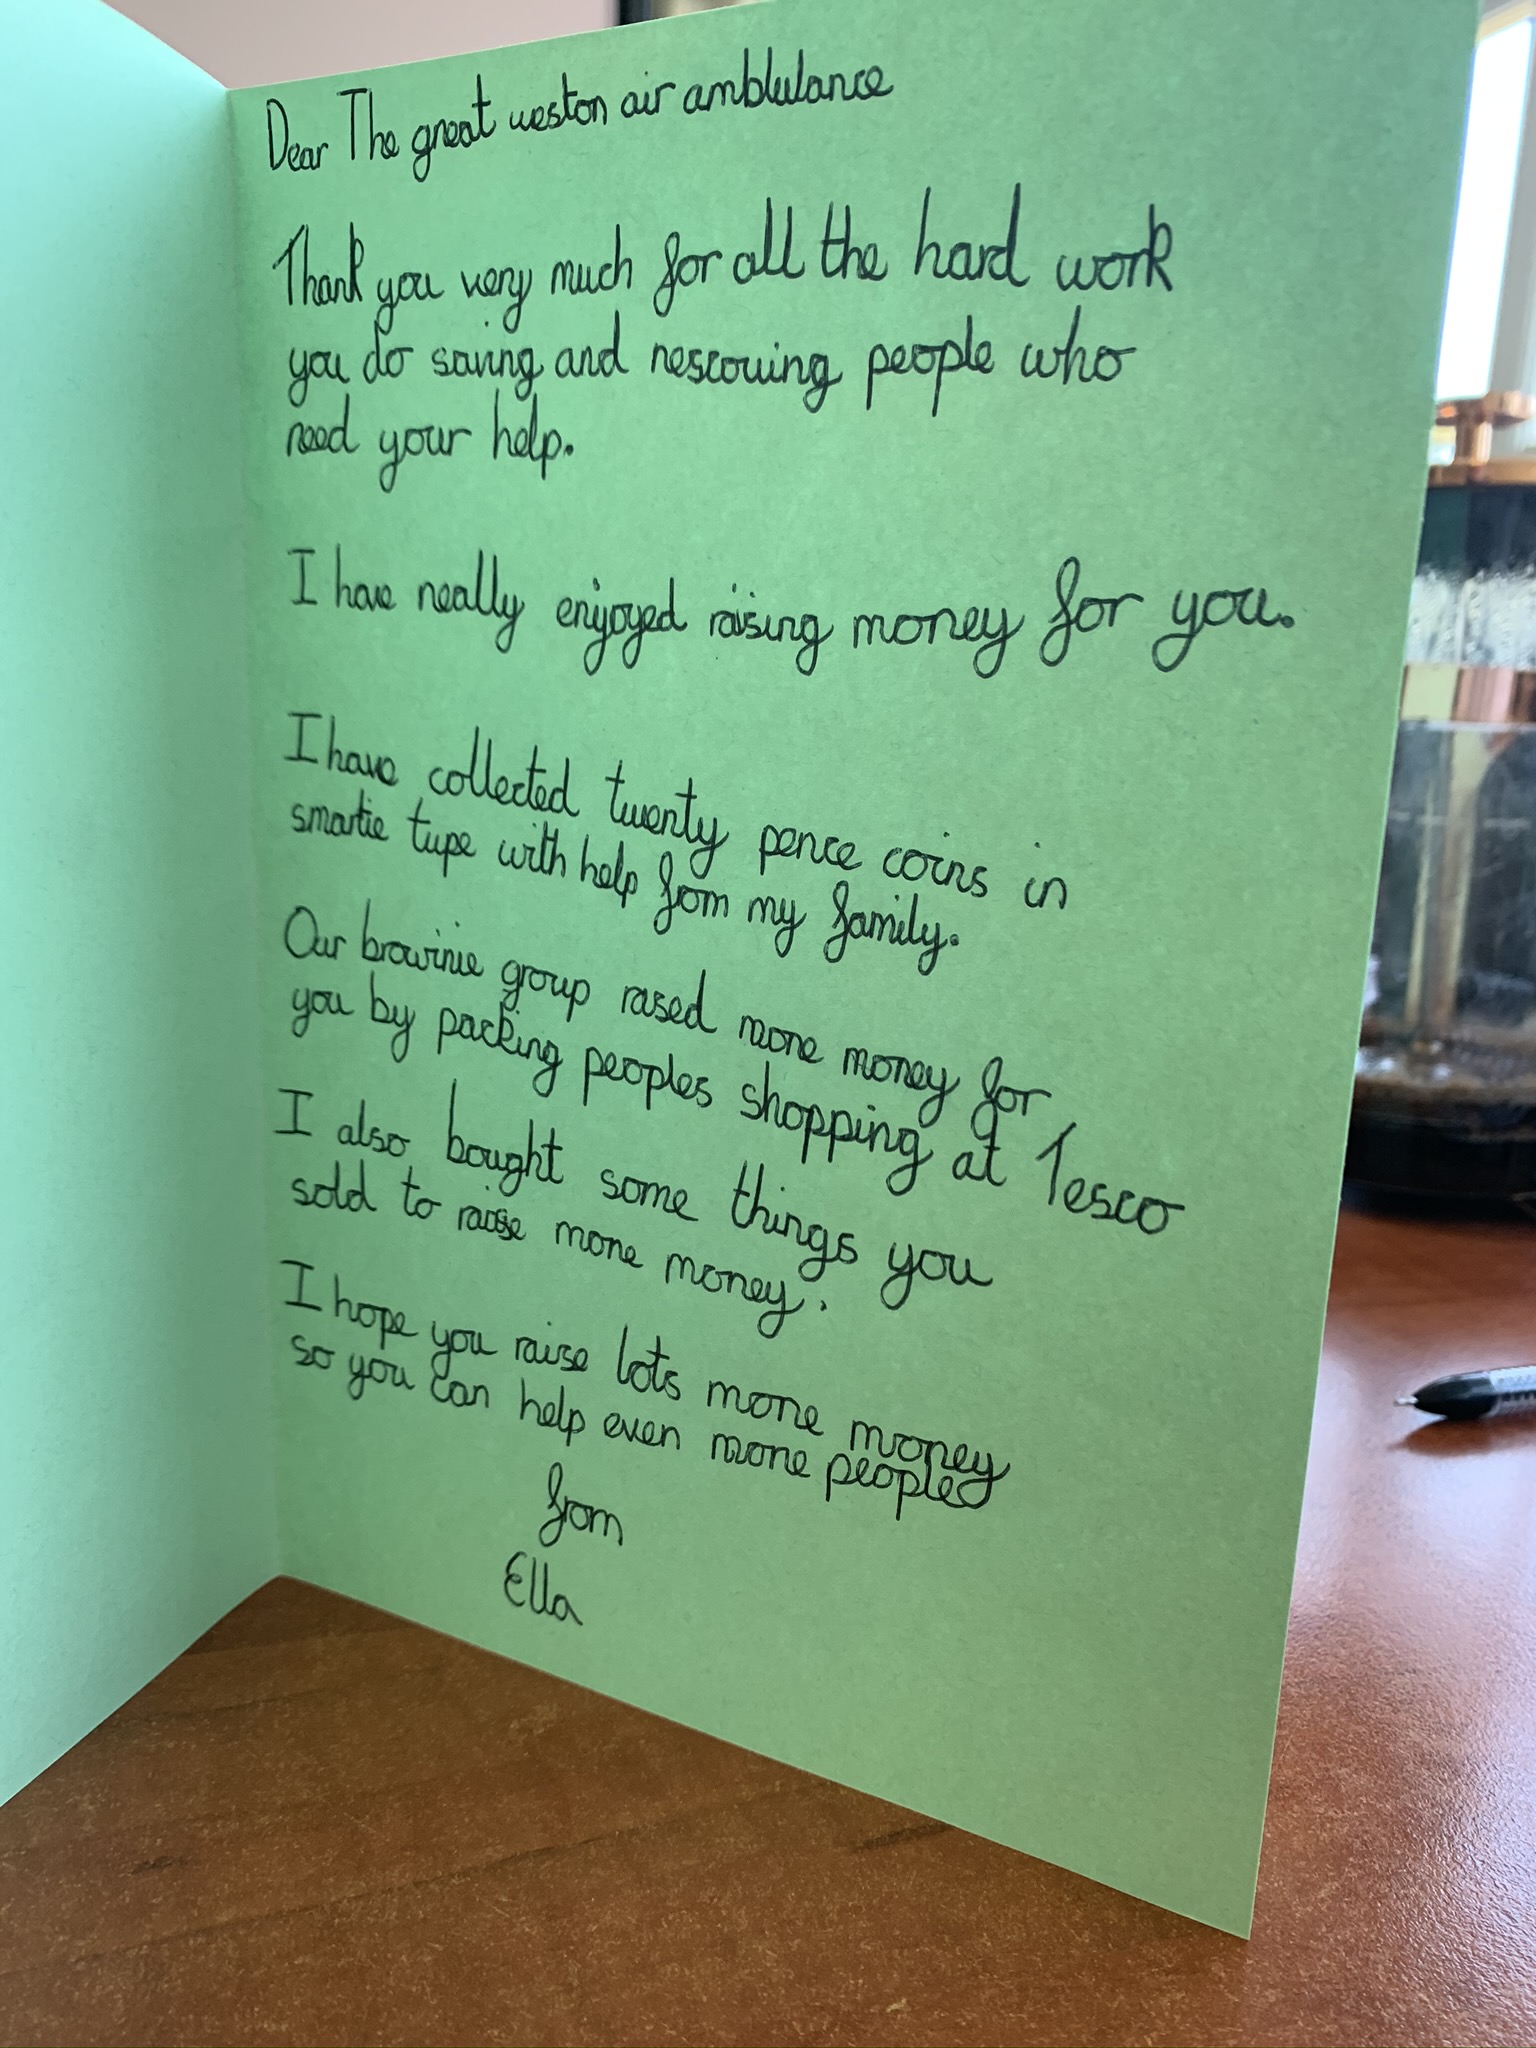 Dear The great weston air amblulance
Thank you very much for all the hard work
you do saving and rescouing people who
need your help.
I have really enjoyed raising money for you.
I have collected twenty pence coins in
smartie tupe with help from my family.
Our brownie group rased more money for
you by packing peoples shopping at Tesco
I also bought some things you
sold to raise more money.
I hope you raise lots more money
so you can help even more people
from
Ella